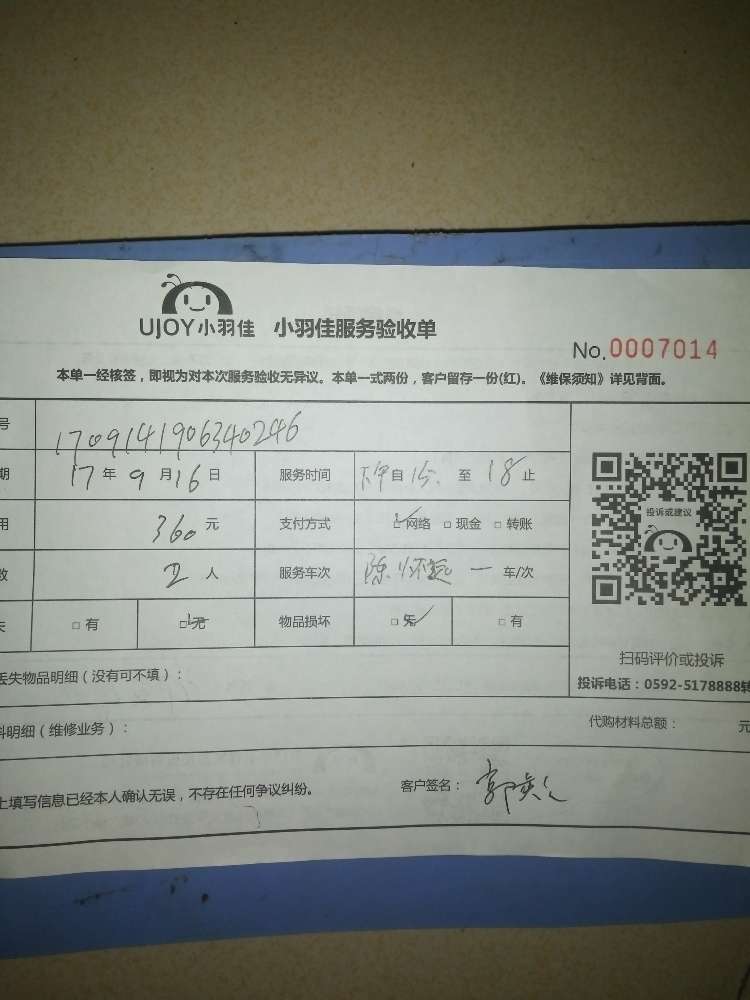 UJOY小羽佳 小羽佳服务验收单
No.0007014
本单一经核签，即视为对本次服务验收无异议。本单一式两份，客户留存一份(红)。《维保须知》详见背面。
号 1709141906340246
期 17年9月16日 服务时间 下午自15 至18止
用 360元 支付方式 网络 现金 转账
数 2人 服务车次 陈怀 一 车/次
失 有 无 物品损坏 无 有
投诉或建议
扫码评价或投诉
投诉电话：0592-5178888转
丢失物品明细（没有可不填）：
料明细（维修业务）： 代购材料总额： 元
上填写信息已经本人确认无误，不存在任何争议纠纷。 客户签名：郭